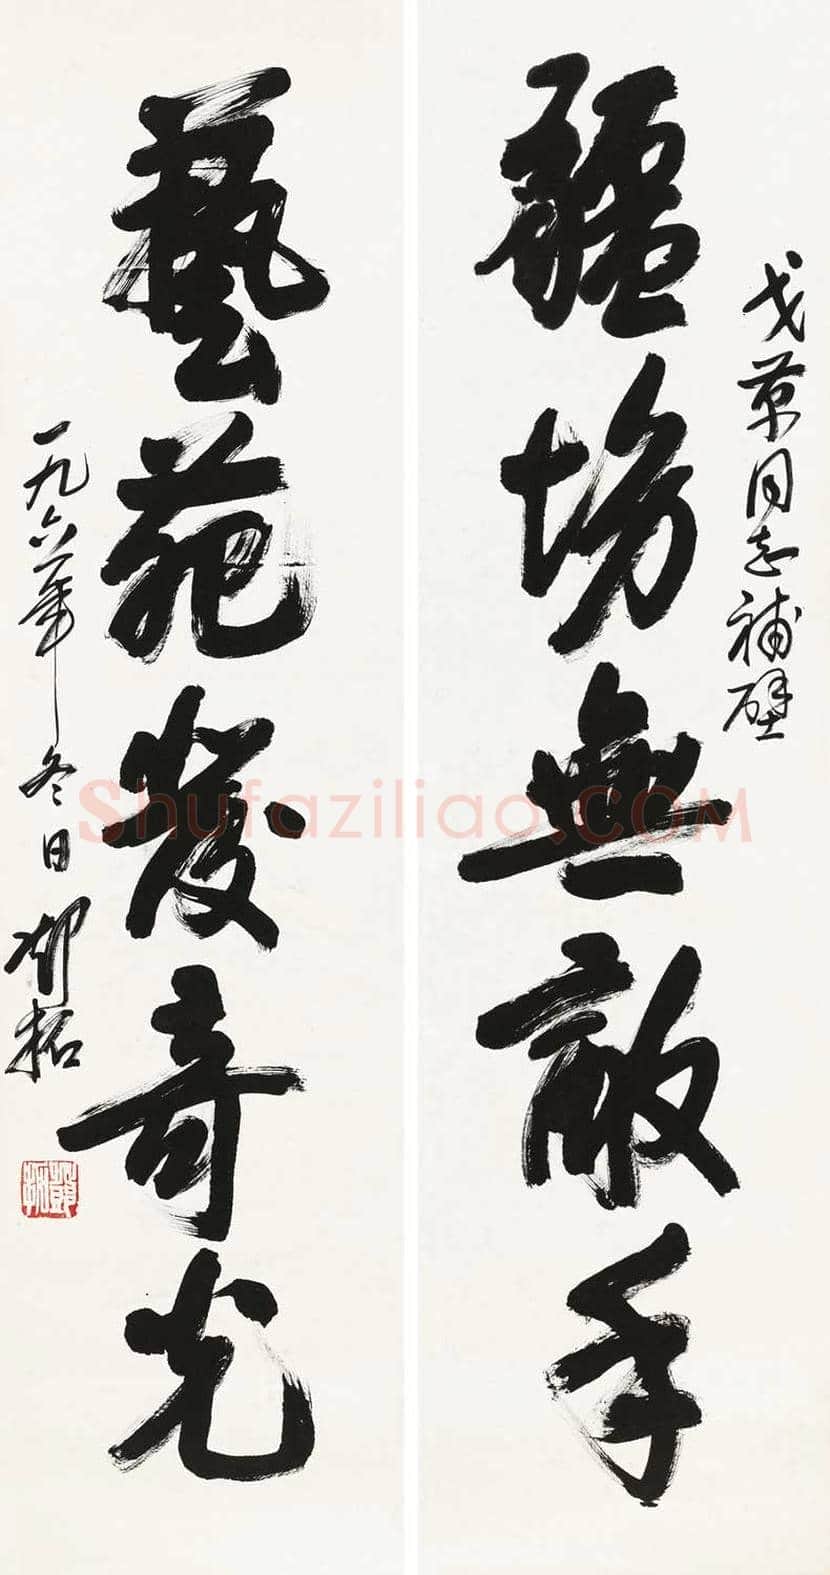 戈 同志補壁
疆場無敵手
藝苑發奇光
一九六一年冬日 鄧拓
鄧拓
Shufaziliao.COM